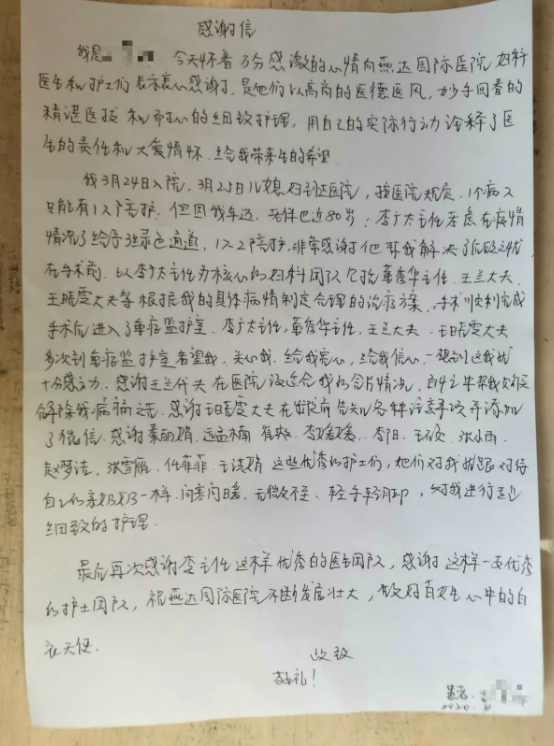 感谢信
我是 今天怀着万分感激的心情向燕达国际医院妇科
医生和护士们表示衷心感谢,是他们以高尚的医德医风,妙手回春的
精湛医技和耐心的细致护理,用自己的实际行动诠释了医
生的责任和大爱情怀.给我带来生的希望.
我3月24日入院,3月25日儿媳妇到达医院,按医院规定,1个病人
只能有1人陪护.但因我年迈,老伴也近80岁;李广太主任考虑在病情
情况下给予绿色通道,1人2陪护,非常感谢他帮我解决了后顾之忧
在手术前.以李广太主任为核心的妇科团队 主任.王兰大夫.
王晓雯大夫等根据我的具体病情制定合理的治疗方案,手术顺利完成
手术后进入了重症监护室.李广太主任, 主任.王兰大夫.王晓雯大夫
多次到重症监护室看望我.关心我.给我安心,给我信心.一想到这我就
十分感动.感谢王兰大夫在医院 我的 情况,
解除我病痛之.感谢王晓雯大夫在出院前告知各种注意事项并添加
了微信.感谢 李媛媛.李阳.
赵梦洁. 任菲菲. 这些优秀的护士们,她们对我就跟对待
自己的亲奶奶一样.问寒问暖.无微不至.轻手轻脚,对我进行
细致的护理.
最后再次感谢李主任这样优秀的医生团队,感谢这样一支优秀
的护士团队,祝燕达国际医院不断发展壮大,做好百姓心中的白
衣天使.
此致
敬礼!
患者: